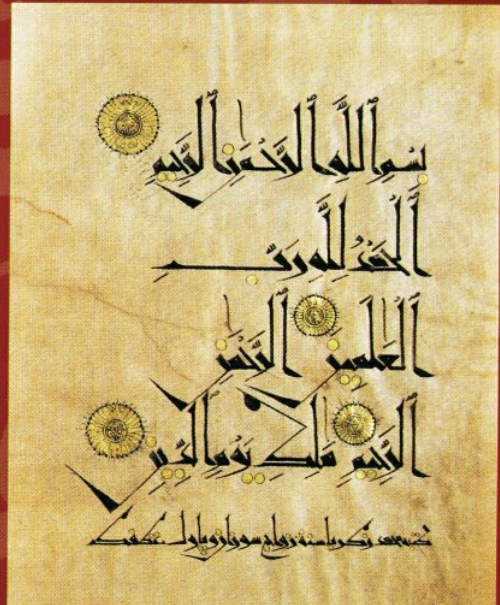 بِسْمِ اللَّهِ الرَّحْمَٰنِ الرَّحِيمِ
الْحَمْدُ لِلَّهِ رَبِّ
الْعَٰلَمِينَ الرَّحْمَٰنِ
الرَّحِيمِ مَٰلِكِ يَوْمِ الدِّينِ